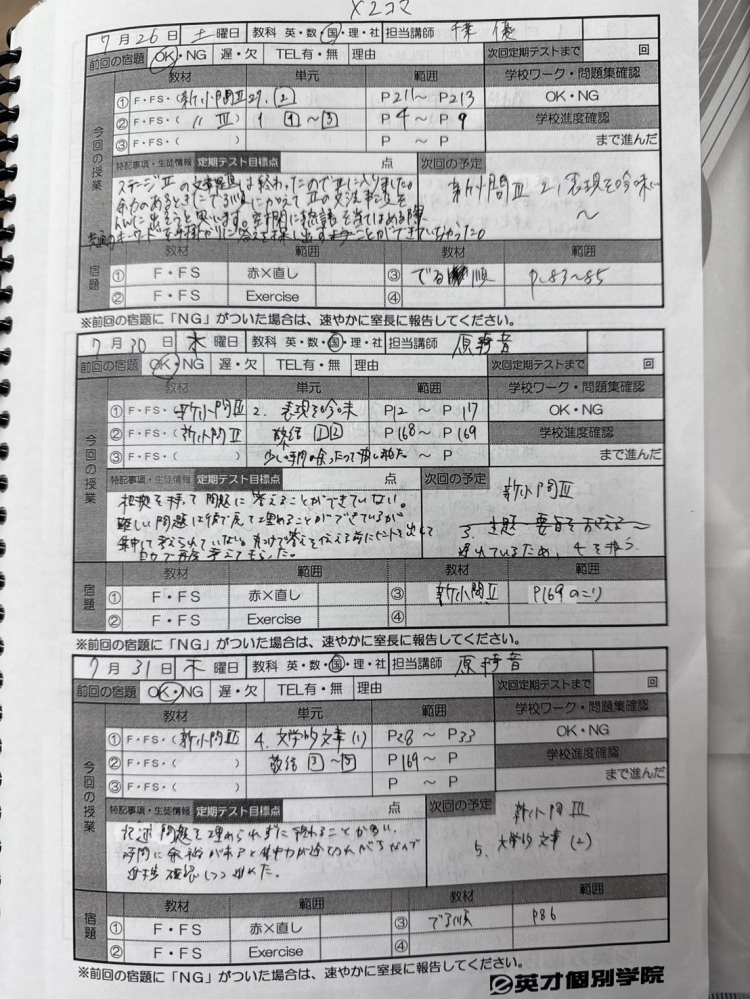 ×2コマ
7月26日 土曜日 教科 英・数・国・理・社 担当講師 千葉 優
前回の宿題 OK・NG 遅・欠 TEL有・無 理由 次回定期テストまで 回
教材 単元 範囲 学校ワーク・問題集確認
① F・FS・(新小問Ⅱ 27. ② P211～P213 OK・NG
② F・FS・( 〃 Ⅲ) 1 ①～③ P4～P9 学校進度確認
③ F・FS・( ) P～P まで進んだ
今回の授業
特記事項・生徒情報 定期テスト目標点 点 次回の予定
ステージⅡの文章題は終わったのでⅢに入りました。
新小問Ⅲ 2. 表現を吟味
～
キーワードを手掛かりに答えを探し出すことができていなかった。
教材 範囲
宿題 ① F・FS 赤×直し ③ でる順 P.83～85
② F・FS Exercise ④
※前回の宿題に「NG」がついた場合は、速やかに室長に報告してください。
7月30日 木曜日 教科 英・数・国・理・社 担当講師 原
前回の宿題 OK・NG 遅・欠 TEL有・無 理由 次回定期テストまで 回
教材 単元 範囲 学校ワーク・問題集確認
① F・FS・新小問Ⅲ 2. 表現を吟味 P12～P17 OK・NG
② F・FS・(新小問Ⅱ ①② P168～P169 学校進度確認
③ F・FS・( 少し時間が余ったので P まで進んだ
今回の授業
特記事項・生徒情報 定期テスト目標点 点 次回の予定
根拠を持って問題に答えることができていない。
難しい問題は後で戻って埋めることができているが
集中して考えられていない
自力で再度考えてもらった。
新小問Ⅲ
3. 主題・要旨をとらえる～
遅れているため、4を扱う
教材 範囲
宿題 ① F・FS 赤×直し ③ 新小問Ⅱ P169のこり
② F・FS Exercise ④
※前回の宿題に「NG」がついた場合は、速やかに室長に報告してください。
7月31日 木曜日 教科 英・数・国・理・社 担当講師 原
前回の宿題 OK・NG 遅・欠 TEL有・無 理由 次回定期テストまで 回
教材 単元 範囲 学校ワーク・問題集確認
① F・FS・(新小問Ⅲ 4. 文学的文章(1) P28～P33 OK・NG
② F・FS・( ) ③～⑤ P169～P 学校進度確認
③ F・FS・( ) P～P まで進んだ
今回の授業
特記事項・生徒情報 定期テスト目標点 点 次回の予定
記述問題を埋められずに終わることが多い。
時間に余裕があると集中力が途切れがちなので
進捗確認しつつ進めた。
新小問Ⅲ
5. 文学的文章(2)
教材 範囲
宿題 ① F・FS 赤×直し ③ でる順 P86
② F・FS Exercise ④
※前回の宿題に「NG」がついた場合は、速やかに室長に報告してください。
英才個別学院